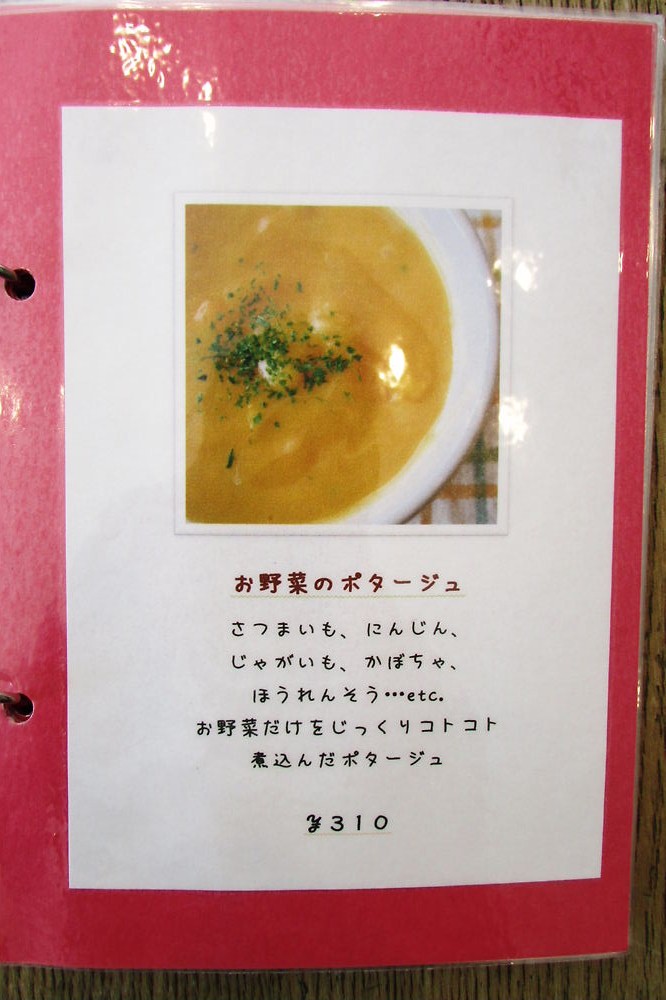 お野菜のポタージュ
さつまいも、にんじん、
じゃがいも、かぼちゃ、
ほうれんそう…etc.
お野菜だけをじっくりコトコト
煮込んだポタージュ
¥310